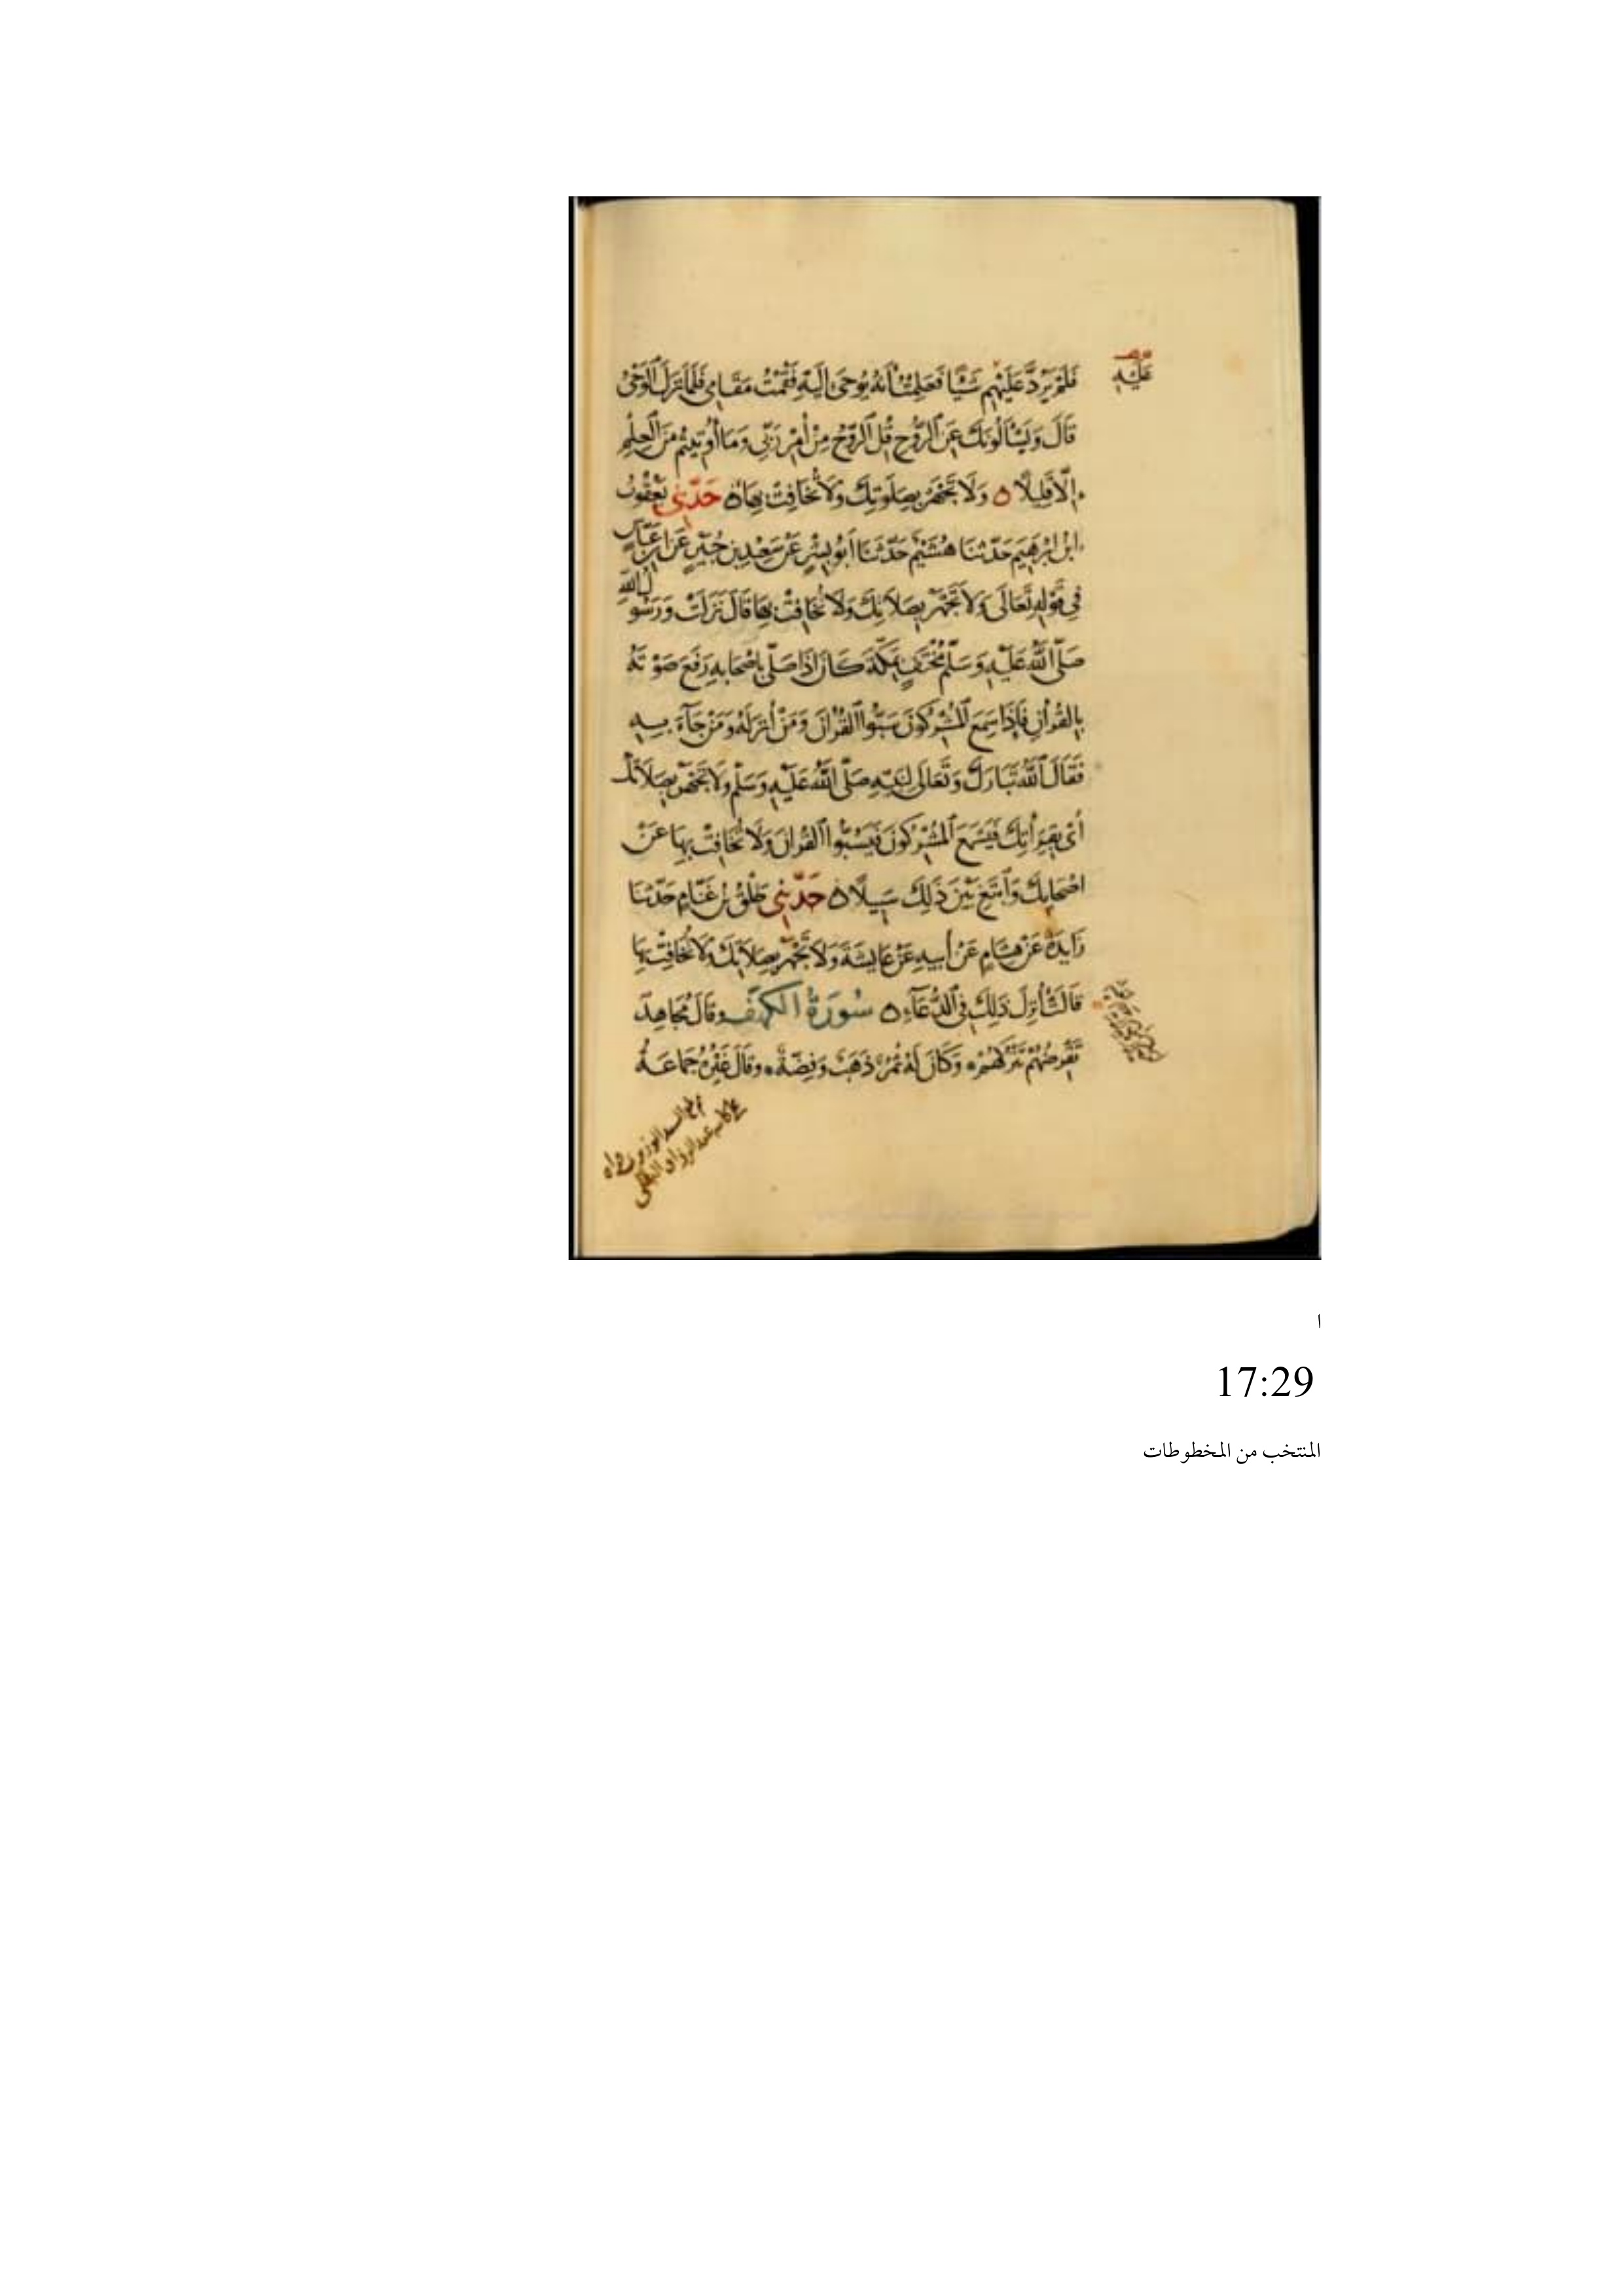 عَلَيْهِ
فَلَمْ يَرُدَّ عَلَيْهِم شَيْئًا فَعَلِمْتُ أَنَّهُ يُوحَى إِلَيْهِ فَقُمْتُ مَقَامِي فَلَمَّا نَزَلَ الْوَحْيُ
قَالَ وَيَسْأَلُونَكَ عَنِ الرُّوحِ قُلِ الرُّوحُ مِنْ أَمْرِ رَبِّي وَمَا أُوتِيتُمْ مِنَ الْعِلْمِ
إِلَّا قَلِيلًا ه وَلَا تَجْهَرْ بِصَلَوتِكَ وَلَا تُخَافِتْ بِهَا ه حَدَّثَنِي يَعْقُوبُ
ابْنُ إِبْرَهِيمَ حَدَّثَنَا هُشَيْمٌ حَدَّثَنَا أَبُو بِشْرٍ عَنْ سَعِيدِ بْنِ جُبَيْرٍ عَنِ ابْنِ عَبَّاسٍ
فِي قَوْلِهِ تَعَالَى وَلَا تَجْهَرْ بِصَلَاتِكَ وَلَا تُخَافِتْ بِهَا قَالَ نَزَلَتْ وَرَسُولُ اللَّهِ
صَلَّى اللَّهُ عَلَيْهِ وَسَلَّمَ مُخْتَفٍ بِمَكَّةَ كَانَ إِذَا صَلَّى بِأَصْحَابِهِ رَفَعَ صَوْتَهُ
بِالْقُرْآنِ فَإِذَا سَمِعَ الْمُشْرِكُونَ سَبُّوا الْقُرْآنَ وَمَنْ أَنْزَلَهُ وَمَنْ جَآءَ بِهِ
فَقَالَ اللَّهُ تَبَارَكَ وَتَعَالَى لِنَبِيِّهِ صَلَّى اللَّهُ عَلَيْهِ وَسَلَّمَ وَلَا تَجْهَرْ بِصَلَاتِكَ
أَيْ بِقِرَاءَتِكَ فَيَسْمَعَ الْمُشْرِكُونَ فَيَسُبُّوا الْقُرْآنَ وَلَا تُخَافِتْ بِهَا عَنْ
أَصْحَابِكَ وَابْتَغِ بَيْنَ ذَلِكَ سَبِيلًا ه حَدَّثَنِي طَلْقُ بْنُ غَنَّامٍ حَدَّثَنَا
زَايِدَةُ عَنْ هِشَامٍ عَنْ أَبِيهِ عَنْ عَايِشَةَ وَلَا تَجْهَرْ بِصَلَاتِكَ وَلَا تُخَافِتْ بِهَا
قَالَتْ أُنْزِلَ ذَلِكَ فِي الدُّعَآءِ ه سُورَةُ الْكَهْفِ وقَالَ مُجَاهِدٌ
تَقْرِضُهُمْ تَتْرُكُهُمْ وَكَانَ لَهُ ثُمُرٌ ذَهَبٌ وَفِضَّةٌ وقَالَ غَيْرُهُ جَمَاعَةُ
ا
17:29
المنتخب من المخطوطات